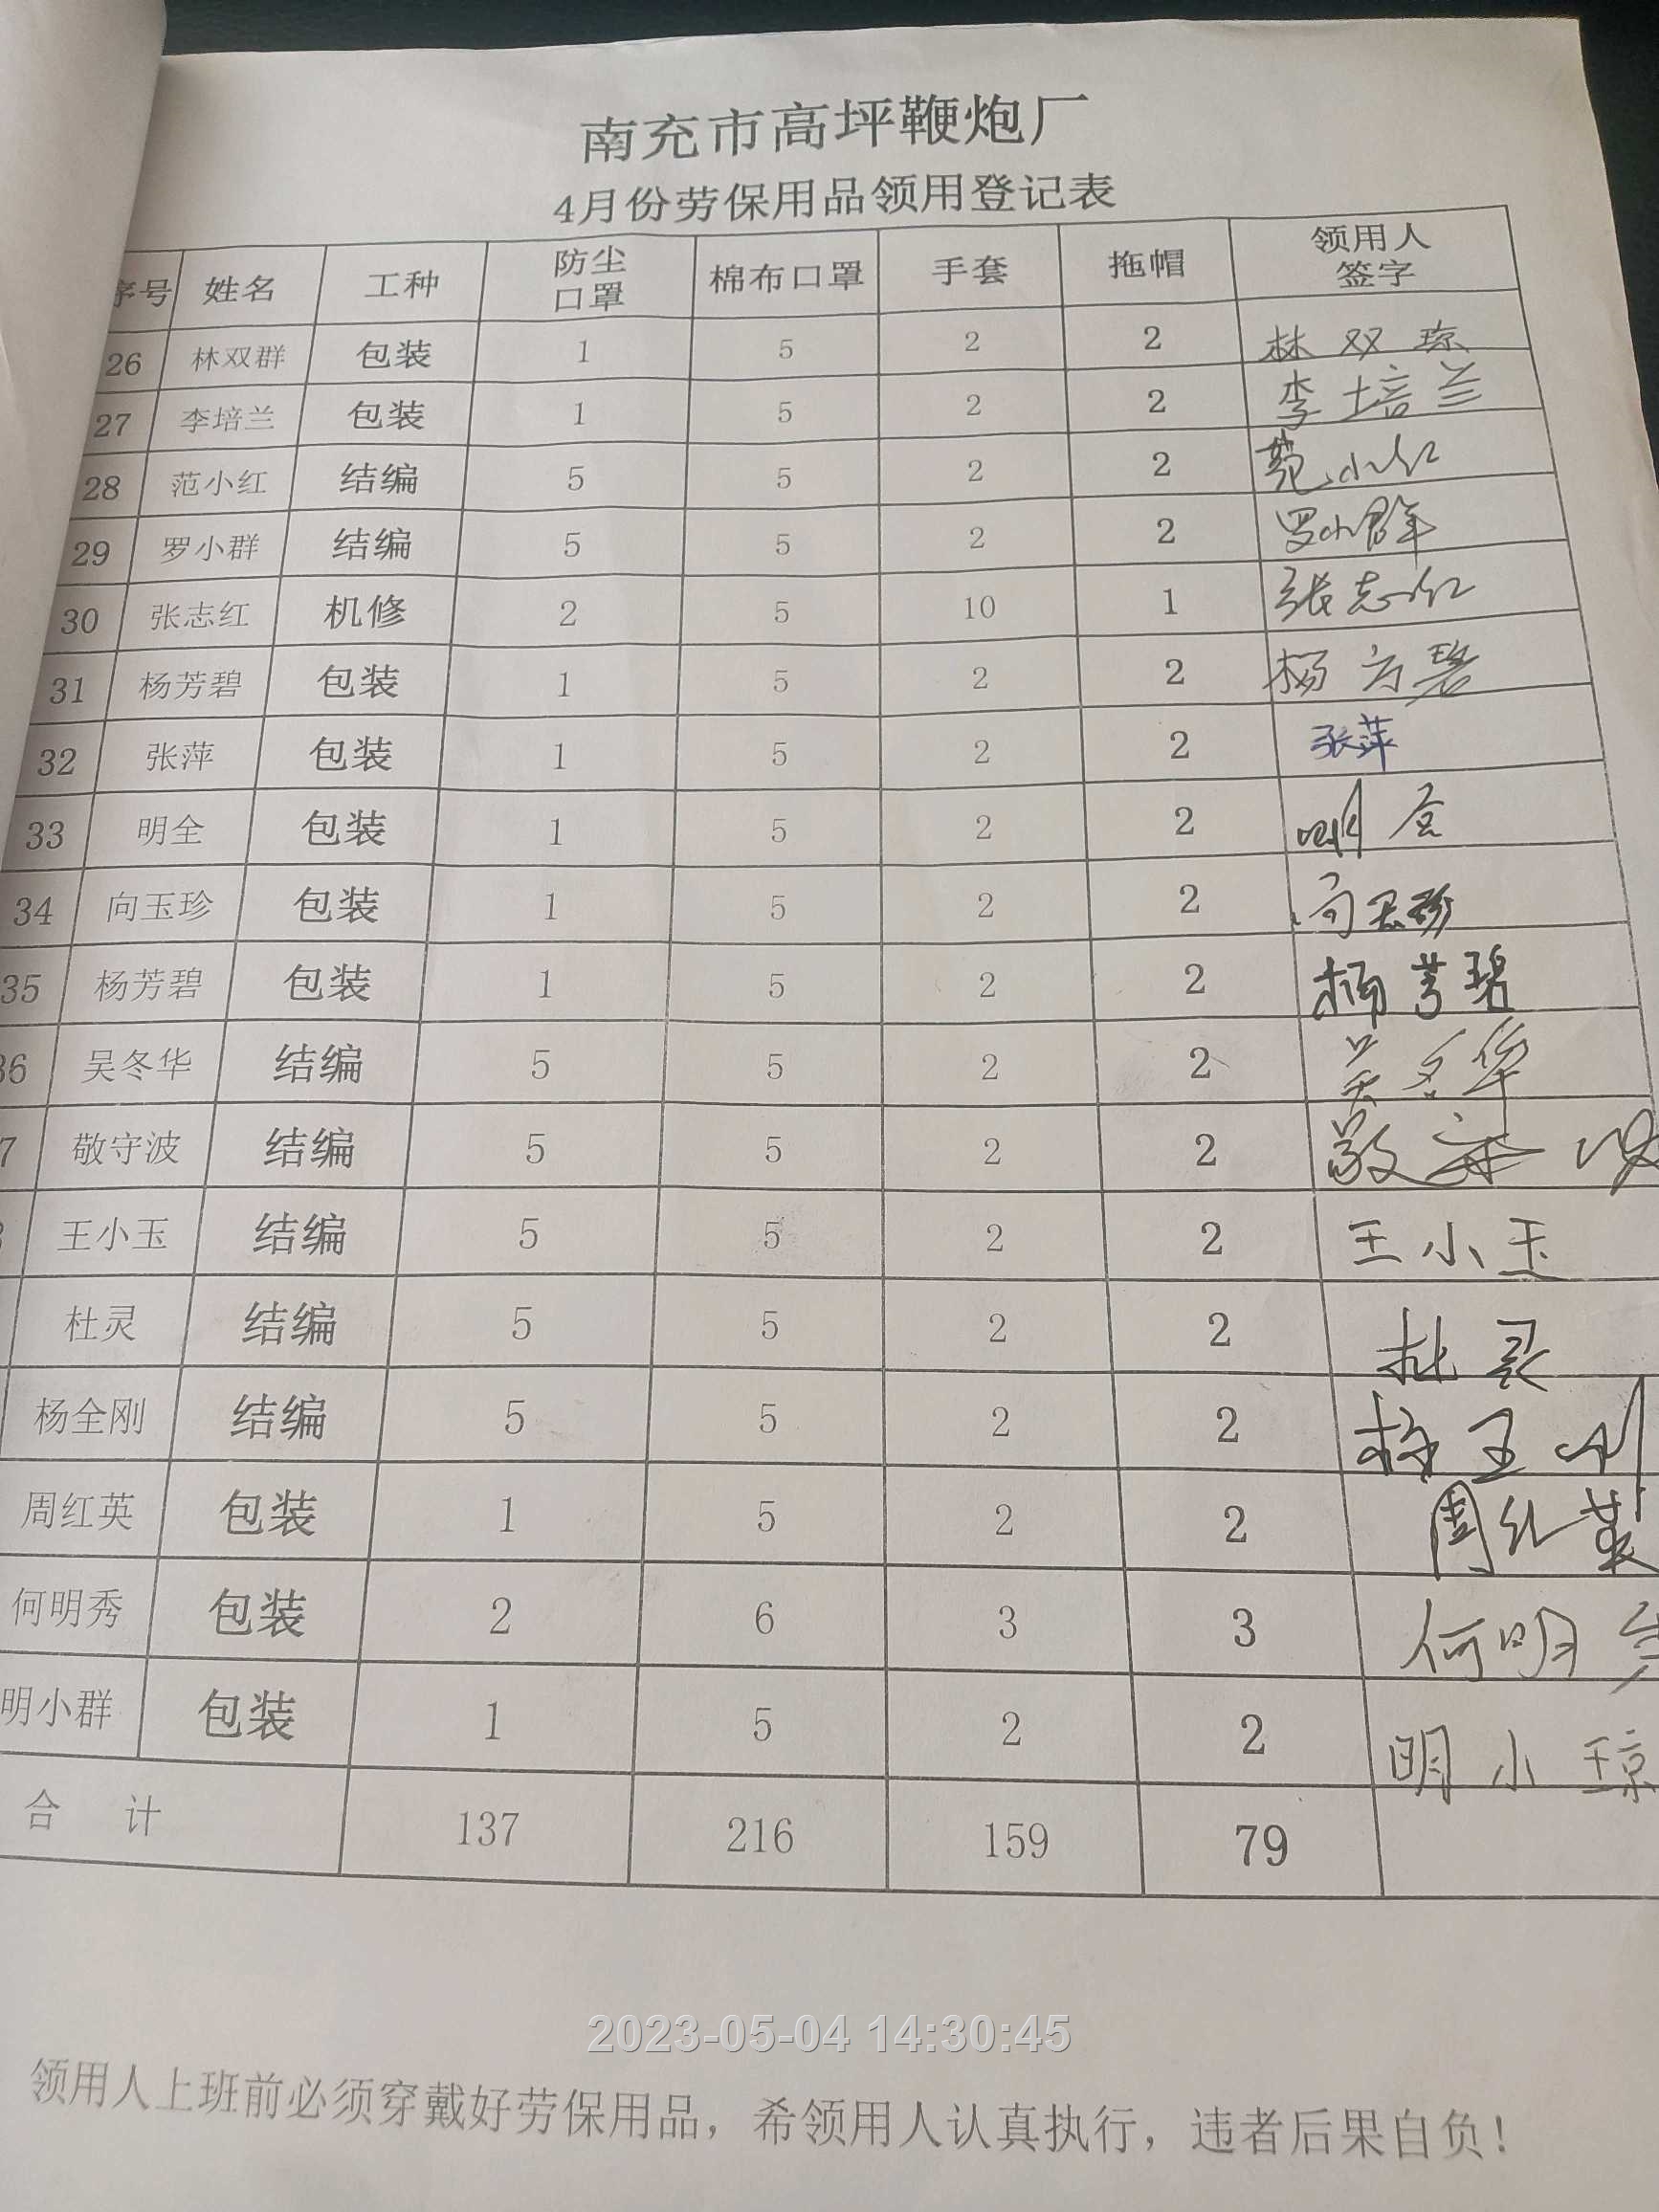 南充市高坪鞭炮厂
4月份劳保用品领用登记表
序号 姓名 工种 防尘口罩 棉布口罩 手套 拖帽 领用人签字
26 林双群 包装 1 5 2 2 林双琼
27 李培兰 包装 1 5 2 2 李培兰
28 范小红 结编 5 5 2 2 范小红
29 罗小群 结编 5 5 2 2 罗小群
30 张志红 机修 2 5 10 1 张志红
31 杨芳碧 包装 1 5 2 2 杨方碧
32 张萍 包装 1 5 2 2 张萍
33 明全 包装 1 5 2 2 明全
34 向玉珍 包装 1 5 2 2 向玉珍
35 杨芳碧 包装 1 5 2 2 杨芳碧
36 吴冬华 结编 5 5 2 2 吴冬华
7 敬守波 结编 5 5 2 2 敬守波
王小玉 结编 5 5 2 2 王小玉
杜灵 结编 5 5 2 2 杜灵
杨全刚 结编 5 5 2 2
周红英 包装 1 5 2 2 周红英
何明秀 包装 2 6 3 3 何明
明小群 包装 1 5 2 2 明小琼
合计 137 216 159 79
2023-05-04 14:30:45
领用人上班前必须穿戴好劳保用品，希领用人认真执行，违者后果自负！